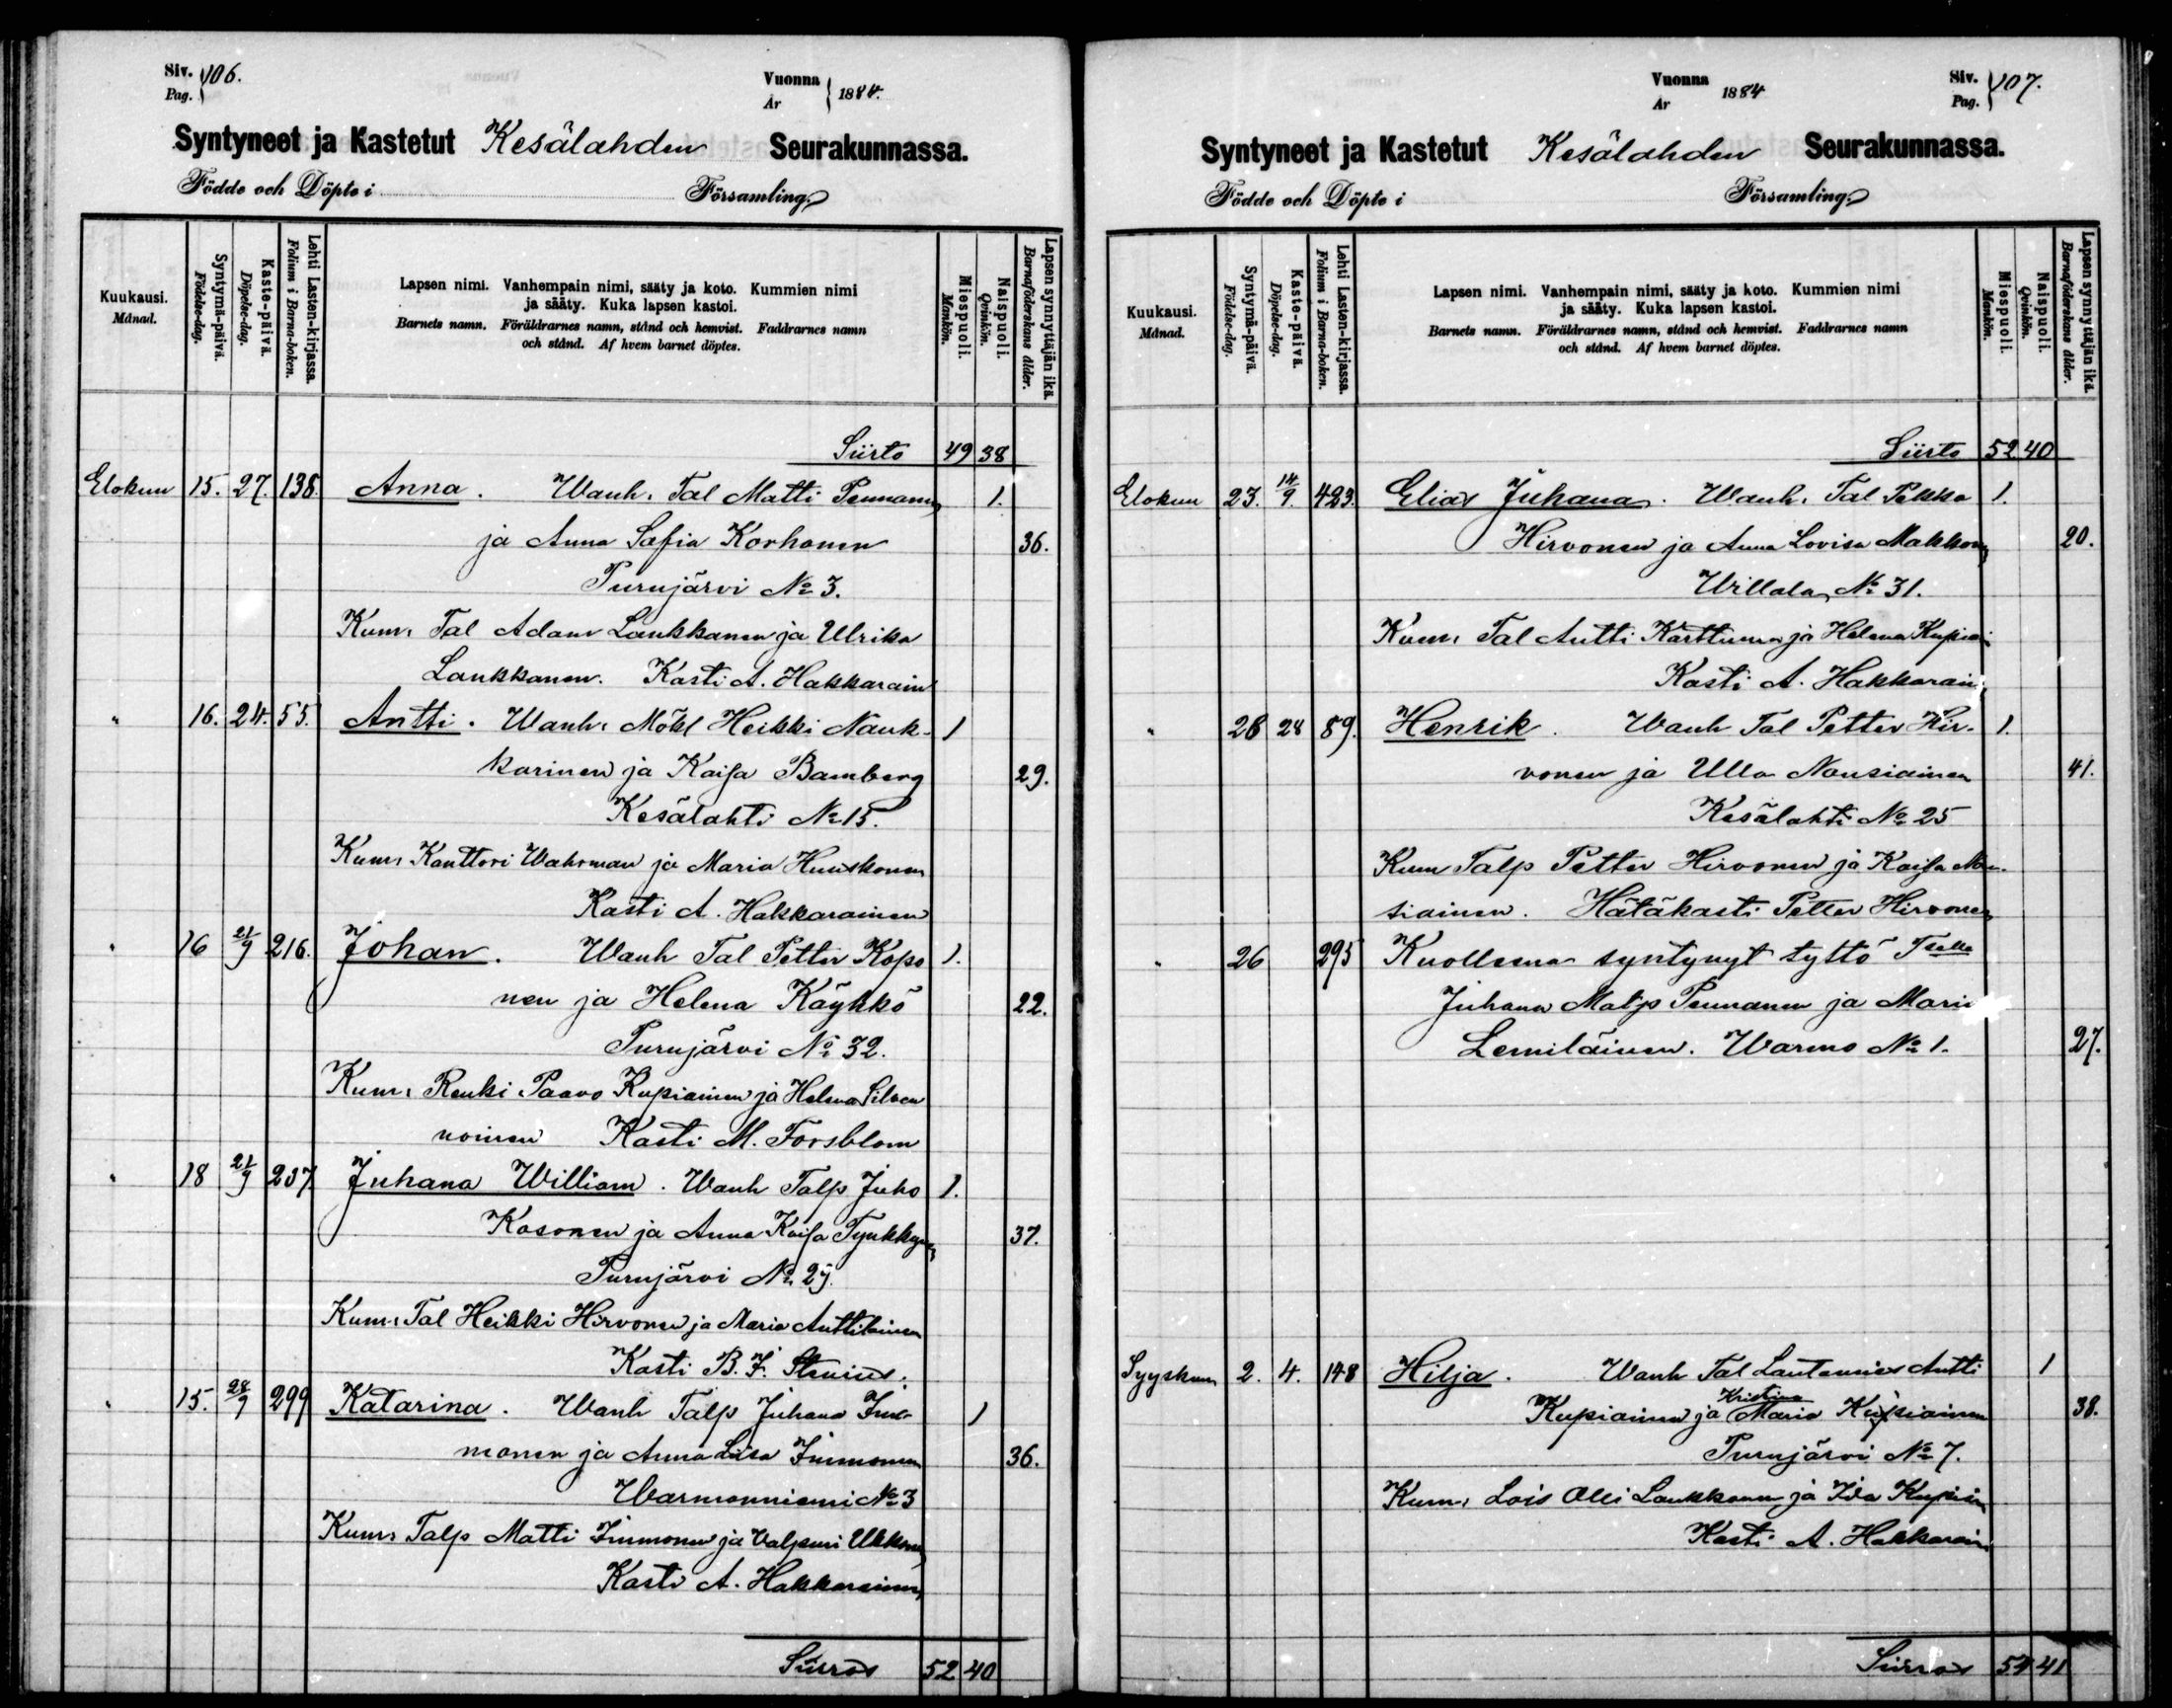 Siv. Pag. 106.
Vuonna År 1884.
Syntyneet ja Kastetut Kesälahden Seurakunnassa.
Födde och Döpte i Församling.
Kuukausi. Månad.
Syntymä-päivä. Födelse-dag.
Kaste-päivä. Döpelse-dag.
Lehti Lasten-kirjassa. Folium i Barna-boken.
Lapsen nimi. Vanhempain nimi, sääty ja koto. Kummien nimi
ja sääty. Kuka lapsen kastoi.
Barnets namn. Föräldrarnes namn, stånd och hemvist. Faddrarnes namn
och stånd. Af hvem barnet döptes.
Miespuoli. Mankön.
Naispuoli. Qvinkön.
Lapsen synnyttäjän ikä. Barnaföderskans ålder.
Siirto 49 38
Elokuu 15. 27. 138. Anna. Wanh. Tal Matti Pennanen 1.
ja Anna Sofia Korhonen 36.
Purujärvi No 3.
Kum. Tal Adam Laukkanen ja Ulrika
Laukkanen. Kasti A. Hakkarain
" 16. 24. 55. Antti. Wanh. Mökl Heikki Nauk- 1
karinen ja Kaisa Bamberg 29.
Kesälahti No 15.
Kum. Kanttori Wahrman ja Maria Huuskonen
Kasti A. Hakkarainen
" 16 21/9 216. Johan. Wanh Tal Petter Kopo 1.
nen ja Helena Käykkö 22.
Purujärvi No 32.
Kum. Renki Paavo Kupiainen ja Helena Silven
noinen Kasti M. Forsblom
" 18 21/9 237 Juhana William. Wanh Talp Juho 1.
Kosonen ja Anna Kaisa Tynkkynen 37.
Purujärvi No 29.
Kum. Tal Heikki Hirvonen ja Maria Anttilainen
Kasti B. F. Stenius.
" 15. 28/9 299 Katarina. Wanh Talp Juhana Im- 1
monen ja Anna Liisa Immonen 36.
Warmonniemi No 3
Kum. Talp Matti Immonen ja Valpuri Ukkonen
Kasti A. Hakkarainen
Siirros 52 40
Vuonna År 1884
Siv. Pag. 107.
Syntyneet ja Kastetut Kesälahden Seurakunnassa.
Födde och Döpte i Församling.
Kuukausi. Månad.
Syntymä-päivä. Födelse-dag.
Kaste-päivä. Döpelse-dag.
Lehti Lasten-kirjassa. Folium i Barna-boken.
Lapsen nimi. Vanhempain nimi, sääty ja koto. Kummien nimi
ja sääty. Kuka lapsen kastoi.
Barnets namn. Föräldrarnes namn, stånd och hemvist. Faddrarnes namn
och stånd. Af hvem barnet döptes.
Miespuoli. Mankön.
Naispuoli. Qvinkön.
Lapsen synnyttäjän ikä. Barnaföderskans ålder.
Siirto 52 40
Elokuu 23. 14/9. 423. Elias Juhana. Wanh. Tal Pekka 1.
Hirvonen ja Anna Lovisa Makkonen 20.
Willala No 31.
Kum. Tal Antti Karttunen ja Helena Kupiai
Kasti A. Hakkarain
" 26 28 89. Henrik. Wanh Tal Petter Hir- 1.
vonen ja Ulla Nousiainen 41.
Kesälahti No 25
Kum Talp Petter Hirvonen ja Kaisa Nou-
siainen. Hätäkasti Petter Hirvonen
" 26 295 Kuolleena syntynyt tyttö
Juhana Matp Pennanen ja Maria
Lemiläinen. Warmo No 1. 27.
Syyskuu 2. 4. 148 Hilja. Wanh Tal Lautamies Antti 1
Kupiainen ja Kristina Maria Kupiainen 38.
Purujärvi No 7.
Kum. Lois Olli Laukkanen ja Ida Kupiain
Kasti A. Hakkarain
Siirros 54 41